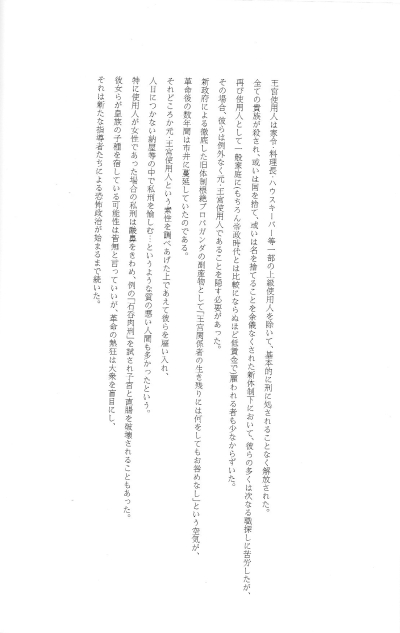 王宮使用人は家令・料理長・ハウスキーパー等一部の上級使用人を除いて、基本的に刑に処されることなく解放された。
全ての貴族が殺され、或いは国を捨て、或いは名を捨てることを余儀なくされた新体制下において、彼らの多くは次なる職探しに苦労したが、
再び使用人として一般家庭に(もちろん帝政時代とは比較にならぬほど低賃金で)雇われる者も少なからずいた。
その場合、彼らは例外なく元・王宮使用人であることを隠す必要があった。
新政府による徹底した旧体制根絶プロパガンダの副産物として『王宮関係者の生き残りには何をしてもお咎めなし』という空気が、
革命後の数年間は市井に蔓延していたのである。
それどころか元・王宮使用人という素性を調べあげた上であえて彼らを雇い入れ、
人目につかない納屋等の中で私刑を愉しむ…というような質の悪い人間も多かったという。
特に使用人が女性であった場合の私刑は酸鼻をきわめ、例の『石呑肉刑』を試され子宮と直腸を破壊されることもあった。
彼女らが皇族の子種を宿している可能性は皆無と言っていいが、革命の熱狂は大衆を盲目にし、
それは新たな指導者たちによる恐怖政治が始まるまで続いた。